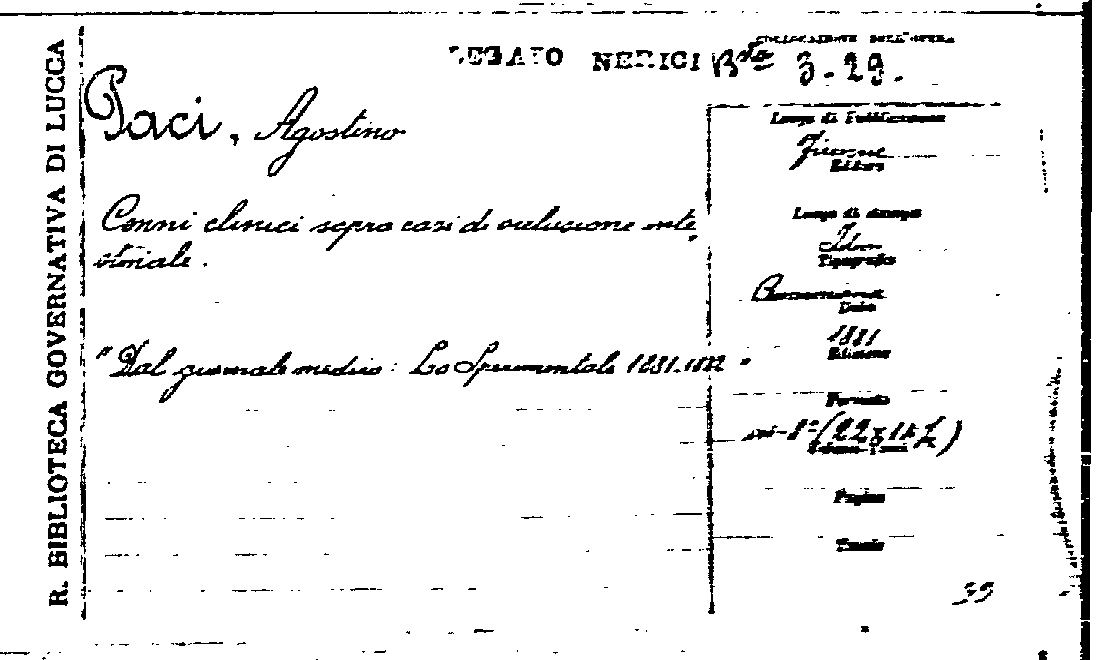 R. BIBLIOTECA GOVERNATIVA DI LUCCA
COLLOCAZIONE DELL'OPERA
LEGATO NERICI Bta 3.29.
Paci, Agostino
Cenni clinici sopra casi di occlusione inte,
stinale.
"Dal giornale medico: Lo Sperimentale 1881.1882"
Luogo di Pubblicazione
Firenze
Editore
Luogo di stampa
Idem
Tipografia
Data
1881
Edizione
Formato
in-8°(
Pagine
Tavole